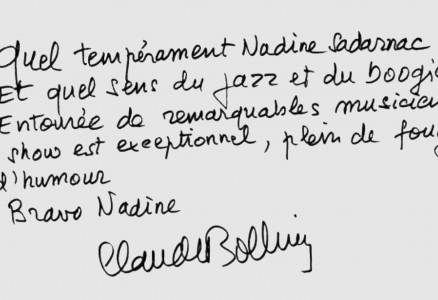 Quel tempérament Nadine Sadarnac
Et quel sens du jazz et du boogie
Entourée de remarquables musicien
show est exceptionnel, plein de foug
d'humour
Bravo Nadine
Claude Bolling